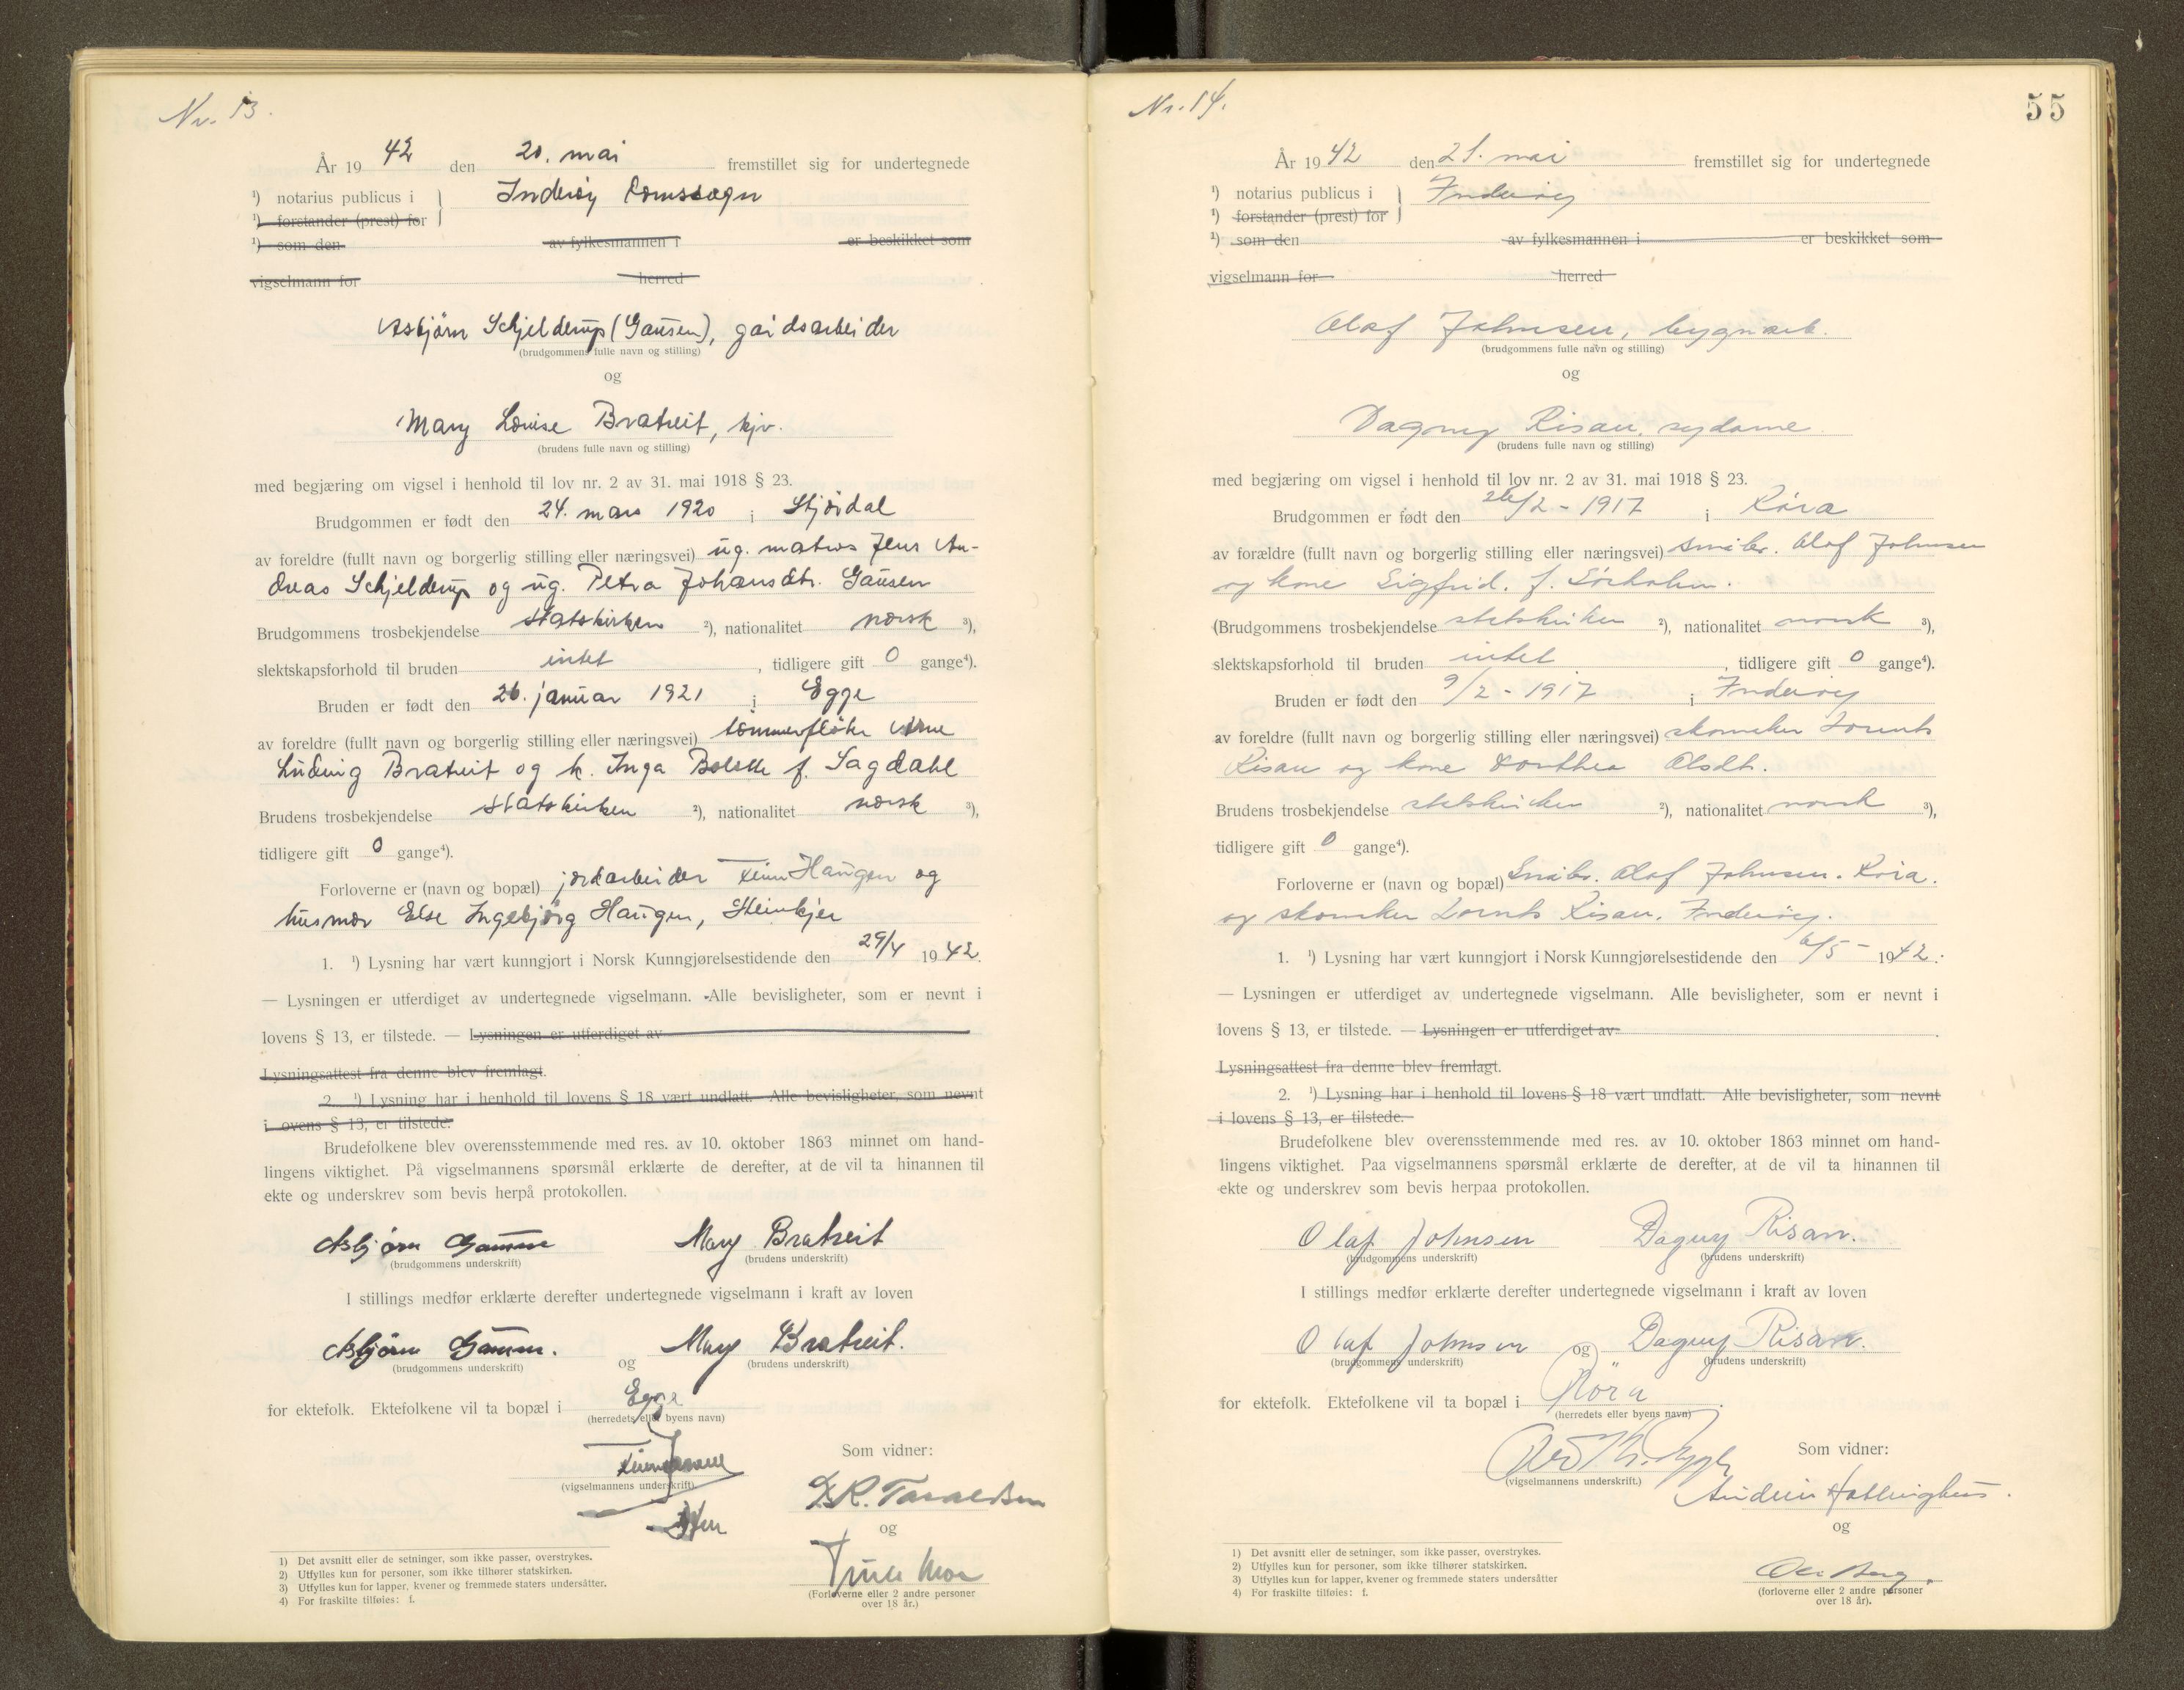 Nr. 13.
År 1942 den 20. mai fremstillet sig for undertegnede
¹) notarius publicus i } Inderøy domssogn
¹) forstander (prest) for
¹) som den av fylkesmannen i er beskikket som
vigselmann for herred
Asbjørn Schjelderup (Gausen), gårdsarbeider
(brudgommens fulle navn og stilling)
og
Mary Louise Bratreit, hjv.
(brudens fulle navn og stilling)
med begjæring om vigsel i henhold til lov nr. 2 av 31. mai 1918 § 23.
Brudgommen er født den 24. mars 1920 i Stjørdal
av foreldre (fullt navn og borgerlig stilling eller næringsvei) ug. matros Jens An-
dreas Schjelderup og ug. Petra Johansdtr. Gausen
Brudgommens trosbekjendelse statskirken ²), nationalitet norsk ³),
slektskapsforhold til bruden intet , tidligere gift 0 gange⁴).
Bruden er født den 26. januar 1921 i Egge
av foreldre (fullt navn og borgerlig stilling eller næringsvei) tømmerfløter Arne
Ludvig Bratreit og h. Inga Bolette f. Sagdahl
Brudens trosbekjendelse statskirken ²), nationalitet norsk ³),
tidligere gift 0 gange⁴).
Forloverne er (navn og bopæl) jordarbeider Finn Haugen og
husmor Else Ingebjørg Haugen, Steinkjer
1. ¹) Lysning har vært kunngjort i Norsk Kunngjørelsestidende den 29/4 1942.
— Lysningen er utferdiget av undertegnede vigselmann. -Alle bevisligheter, som er nevnt i
lovens § 13, er tilstede. — Lysningen er utferdiget av
Lysningsattest fra denne blev fremlagt.
2. ¹) Lysning har i henhold til lovens § 18 vært undlatt. Alle bevisligheter, som nevnt
i ovens § 13, er tilstede.
Brudefolkene blev overensstemmende med res. av 10. oktober 1863 minnet om hand-
lingens viktighet. På vigselmannens spørsmål erklærte de derefter, at de vil ta hinannen til
ekte og underskrev som bevis herpå protokollen.
Asbjørn Gausen Mary Bratreit
(brudgommens underskrift) (brudens underskrift)
I stillings medfør erklærte derefter undertegnede vigselmann i kraft av loven
Asbjørn Gausen. og Mary Bratreit.
(brudgommens underskrift) (brudens underskrift)
for ektefolk. Ektefolkene vil ta bopæl i Egge
(herredets eller byens navn)
Som vidner:
(vigselmannens underskrift)
og
(Forloverne eller 2 andre personer
over 18 år.)
1) Det avsnitt eller de setninger, som ikke passer, overstrykes.
2) Utfylles kun for personer, som ikke tilhører statskirken.
3) Utfylles kun for lapper, kvener og fremmede staters undersåtter.
4) For fraskilte tilføies: f.
Nr. 14.
55
År 1942 den 21. mai fremstillet sig for undertegnede
¹) notarius publicus i } Inderøy
¹) forstander (prest) for
¹) som den av fylkesmannen i er beskikket som
vigselmann for herred
Olaf Johnsen, bygn.arb.
(brudgommens fulle navn og stilling)
og
Dagny Risan, sydame
(brudens fulle navn og stilling)
med begjæring om vigsel i henhold til lov nr. 2 av 31. mai 1918 § 23.
Brudgommen er født den 26/2 - 1917 i Røra
av forældre (fullt navn og borgerlig stilling eller næringsvei) småbr. Olaf Johnsen
og kone Sigfrid. f.
(Brudgommens trosbekjendelse statskirken ²), nationalitet norsk ³),
slektskapsforhold til bruden intet , tidligere gift 0 gange⁴).
Bruden er født den 9/2 - 1917 i Inderøy
av foreldre (fullt navn og borgerlig stilling eller næringsvei) skomaker Lornts
Risan og kone Dorthea Olsdtr.
Brudens trosbekjendelse statskirken ²), nationalitet norsk ³),
tidligere gift 0 gange⁴).
Forloverne er (navn og bopæl) Småbr. Olaf Johnsen. Røra.
og skomaker Lornts Risan. Inderøy.
1. ¹) Lysning har vært kunngjort i Norsk Kunngjørelsestidende den 6/5 - 1942.
— Lysningen er utferdiget av undertegnede vigselmann. Alle bevisligheter, som er nevnt i
lovens § 13, er tilstede. — Lysningen er utferdiget av .
Lysningsattest fra denne blev fremlagt.
2. ¹) Lysning har i henhold til lovens § 18 vært undlatt. Alle bevisligheter, som nevnt
i lovens § 13, er tilstede.
Brudefolkene blev overensstemmende med res. av 10. oktober 1863 minnet om hand-
lingens viktighet. Paa vigselmannens spørsmål erklærte de derefter, at de vil ta hinannen til
ekte og underskrev som bevis herpaa protokollen.
Olaf Johnsen Dagny Risan.
(brudgommens underskrift) (brudens underskrift)
I stillings medfør erklærte derefter undertegnede vigselmann i kraft av loven
Olaf Johnsen og Dagny Risan.
(brudgommens underskrift) (brudens underskrift)
for ektefolk. Ektefolkene vil ta bopæl i Röra .
(herredets eller byens navn)
Som vidner:
(vigselmannens underskrift.)
og
Ole Berg.
(forloverne eller 2 andre personer
over 18 år).
1) Det avsnitt eller de setninger, som ikke passer, overstrykes.
2) Utfylles kun for personer, som ikke tilhører statskirken.
3) Utfylles kun for lapper, kvener og fremmede staters undersåtter
4) For fraskilte tilføies: f.